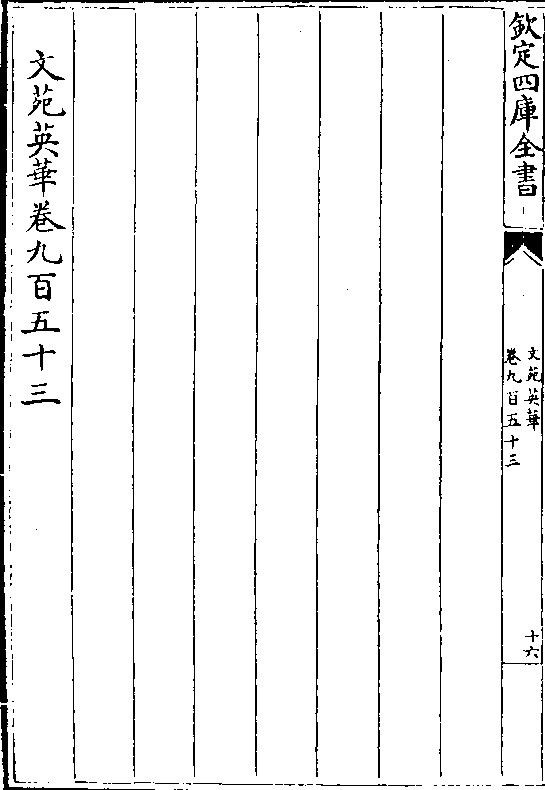 欽定四庫全書
文苑英華
卷九百五十三
十六
文苑英華卷九百五十三